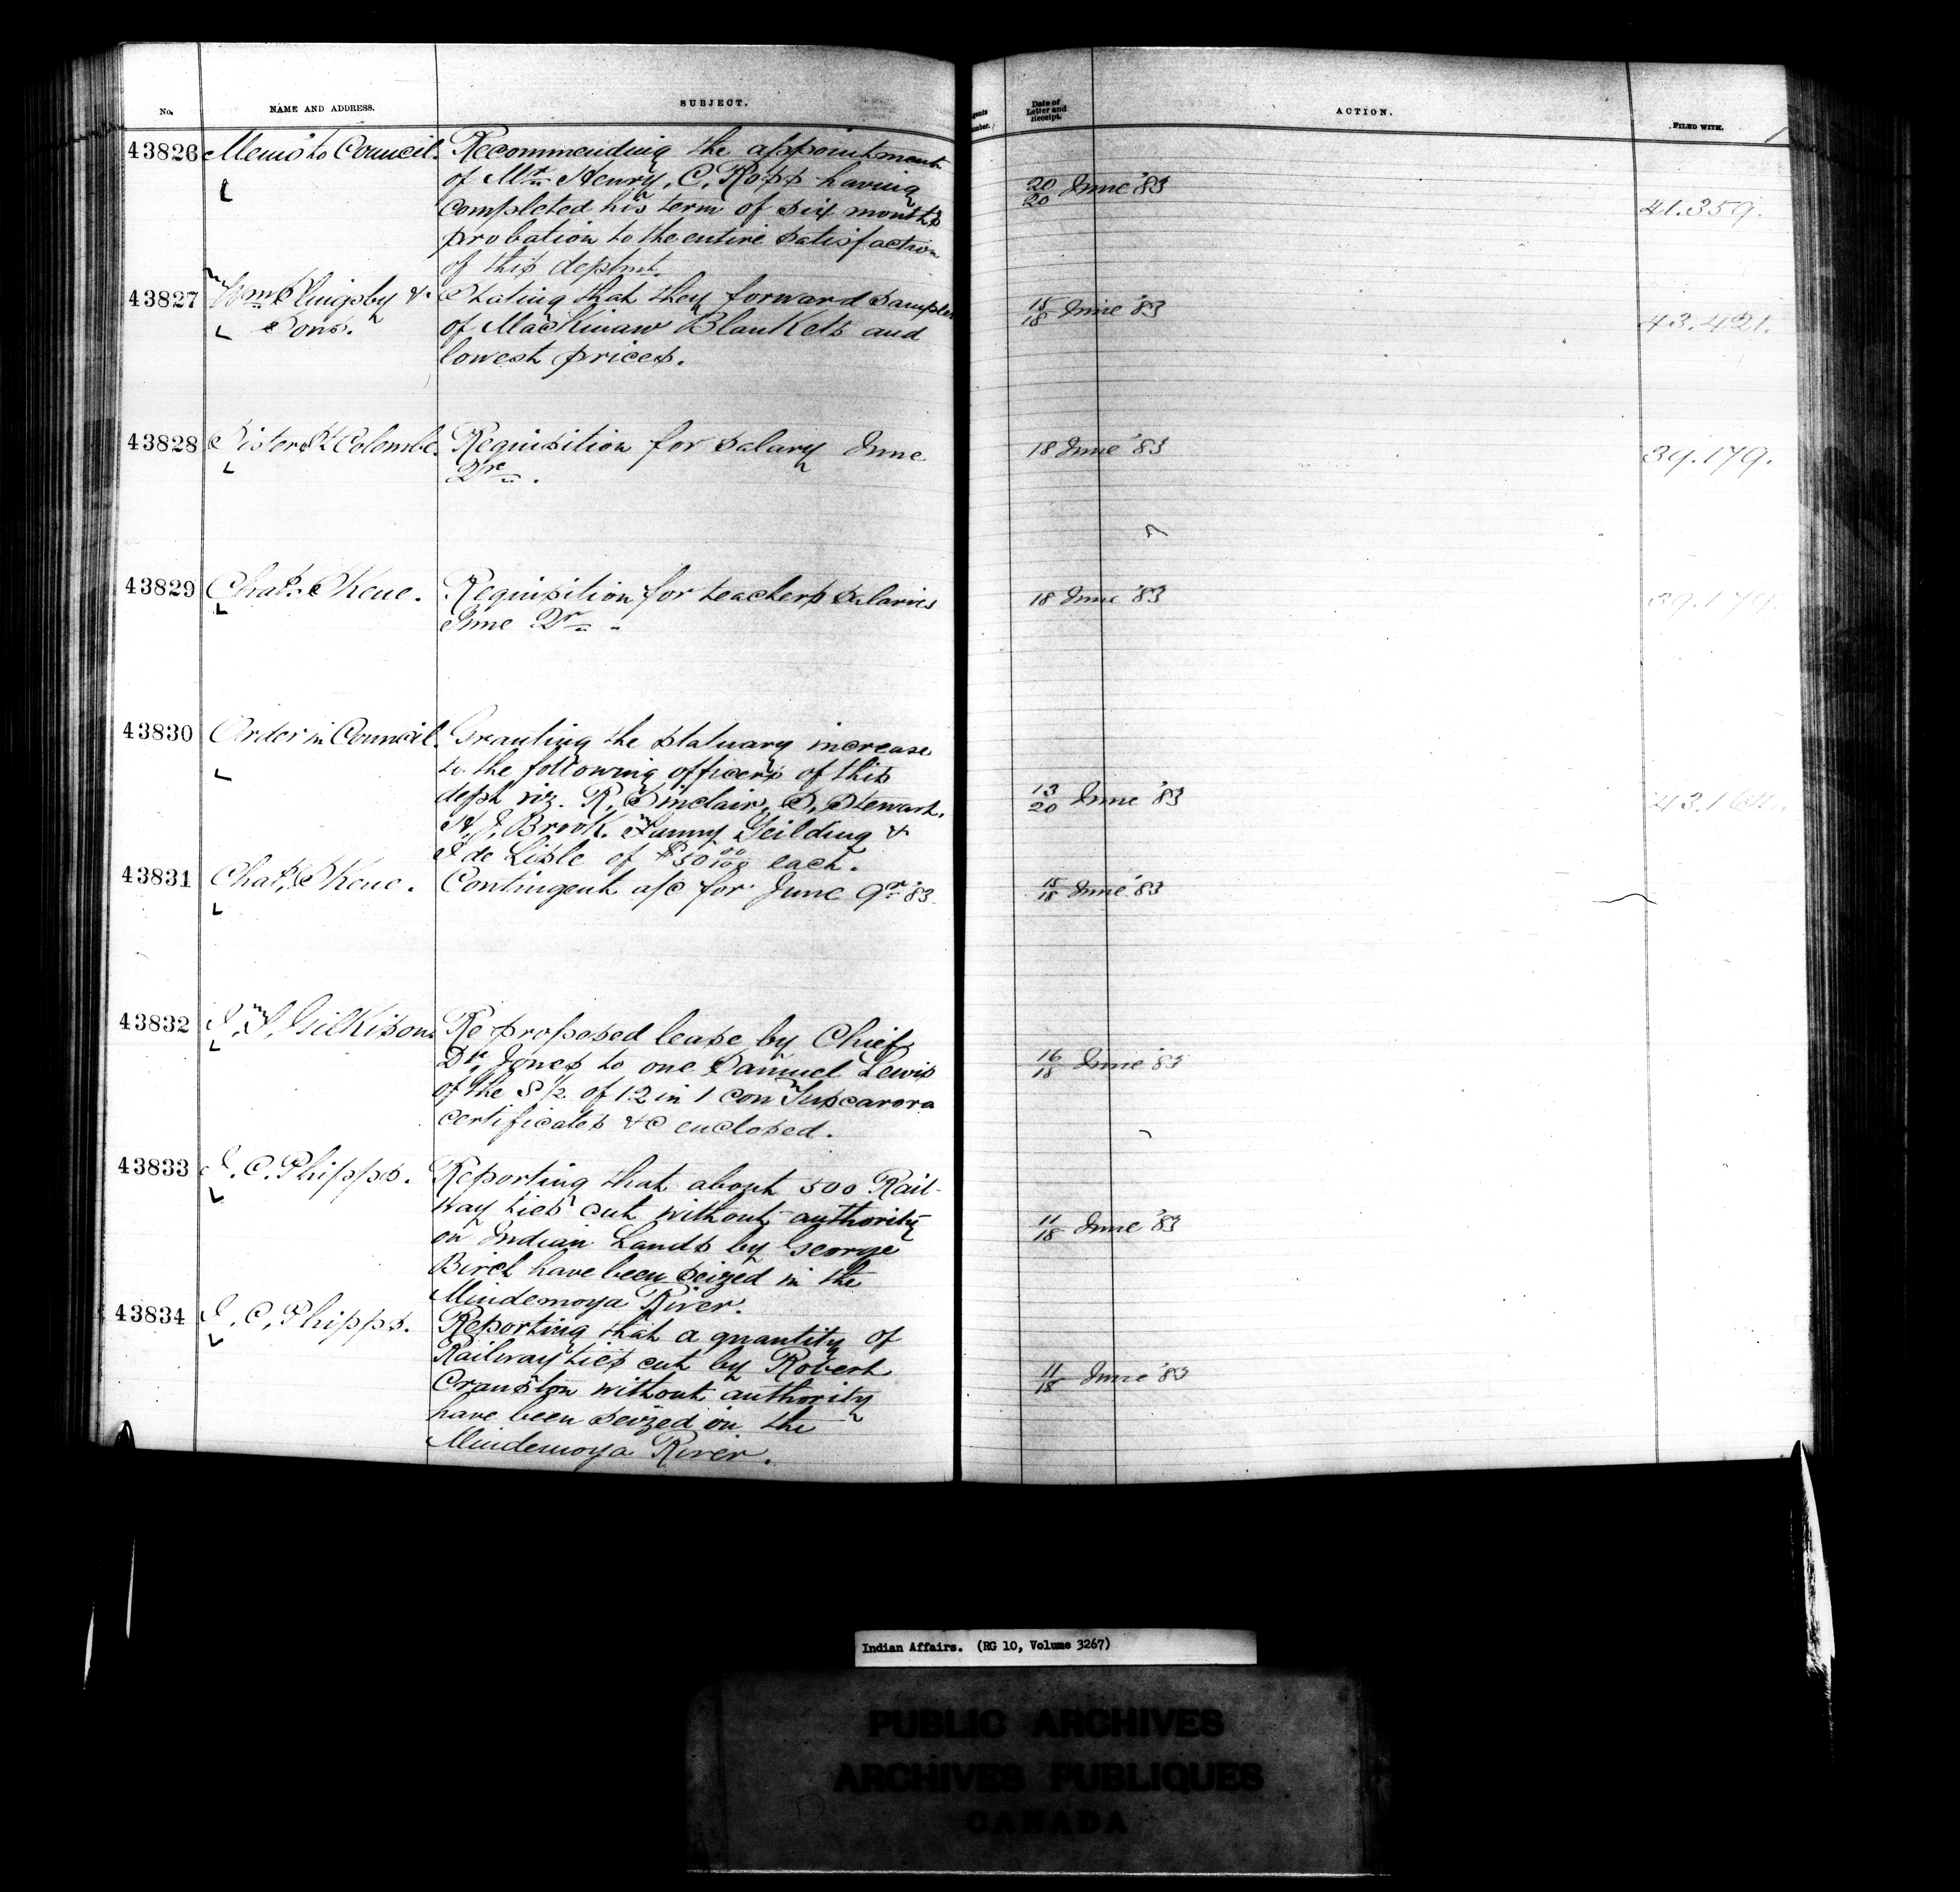 No. NAME AND ADDRESS. SUBJECT. Date of Letter and Receipt. ACTION. FILED WITH.
43826 Memo to Council. Recommending the appointment
of Mr. Henry, C. Ross having
completed his term of six months
probation to the entire satisfaction
of this deptmt.
20/20 June '83
41.359.
43827 Wm Slingsby & Sons. Stating that they forward samples
of Mackinaw Blankets and
lowest prices.
15/18 June '83
43.421.
43828 Sister St Colombe. Requisition for salary June
Qr.
18 June '83
39.179.
43829 Chas. Skene. Requisition for teachers salaries
June Qr
18 June '83
39.179.
43830 Order in Council. Granting the statuary increase
to the following officers of this
dept viz. R. Sinclair, S. Stewart.
H. J. Brook. Fanny Yeilding &
J de Lisle of $50 00/100 each.
13/20 June '83
43831 Chas. Skene. Contingent a/c for June Qr '83
15/18 June '83
43832 J. T. Gilkison. Re proposed lease by Chief
Dr. Jones to one Samuel Lewis
of the S 1/2 of 12 in 1 con Tuscarora
certificates &c enclosed.
16/18 June '83
43833 J. C. Phipps. Reporting that about 500 Rail-
way ties cut without authority
on Indian Lands by George
Birch have been seized in the
Mindemoya River.
11/18 June '83
43834 J. C. Phipps. Reporting that a quantity of
Railway ties cut by Robert
Cranston without authority
have been seized in the
Mindemoya River.
11/18 June '83
Indian Affairs. (RG 10, Volume 3267)
PUBLIC ARCHIVES
ARCHIVES PUBLIQUES
CANADA